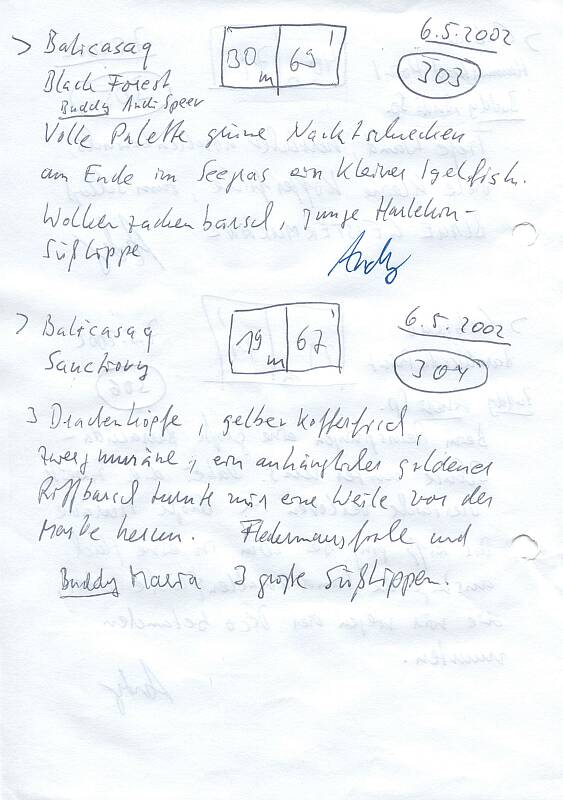 > Balicasag 30 m 69' 6.5.2002
Black Forest 303
Buddy Andi Speer
Volle Palette grüne Nacktschnecken
am Ende im Seegras ein kleiner Igelfisch.
Wolkenzackenbarsch, junge Harlekin-
Süßlippe
Andy
> Balicasag 19 m 67' 6.5.2002
Sanctuary 304
3 Drachenköpfe, gelber Kofferfisch,
Zwergmuräne, ein anhänglicher goldener
Riffbarsch turnte mir eine Weile vor der
Maske herum. Fledermausfische und
Buddy Maria 3 große Süßlippen.